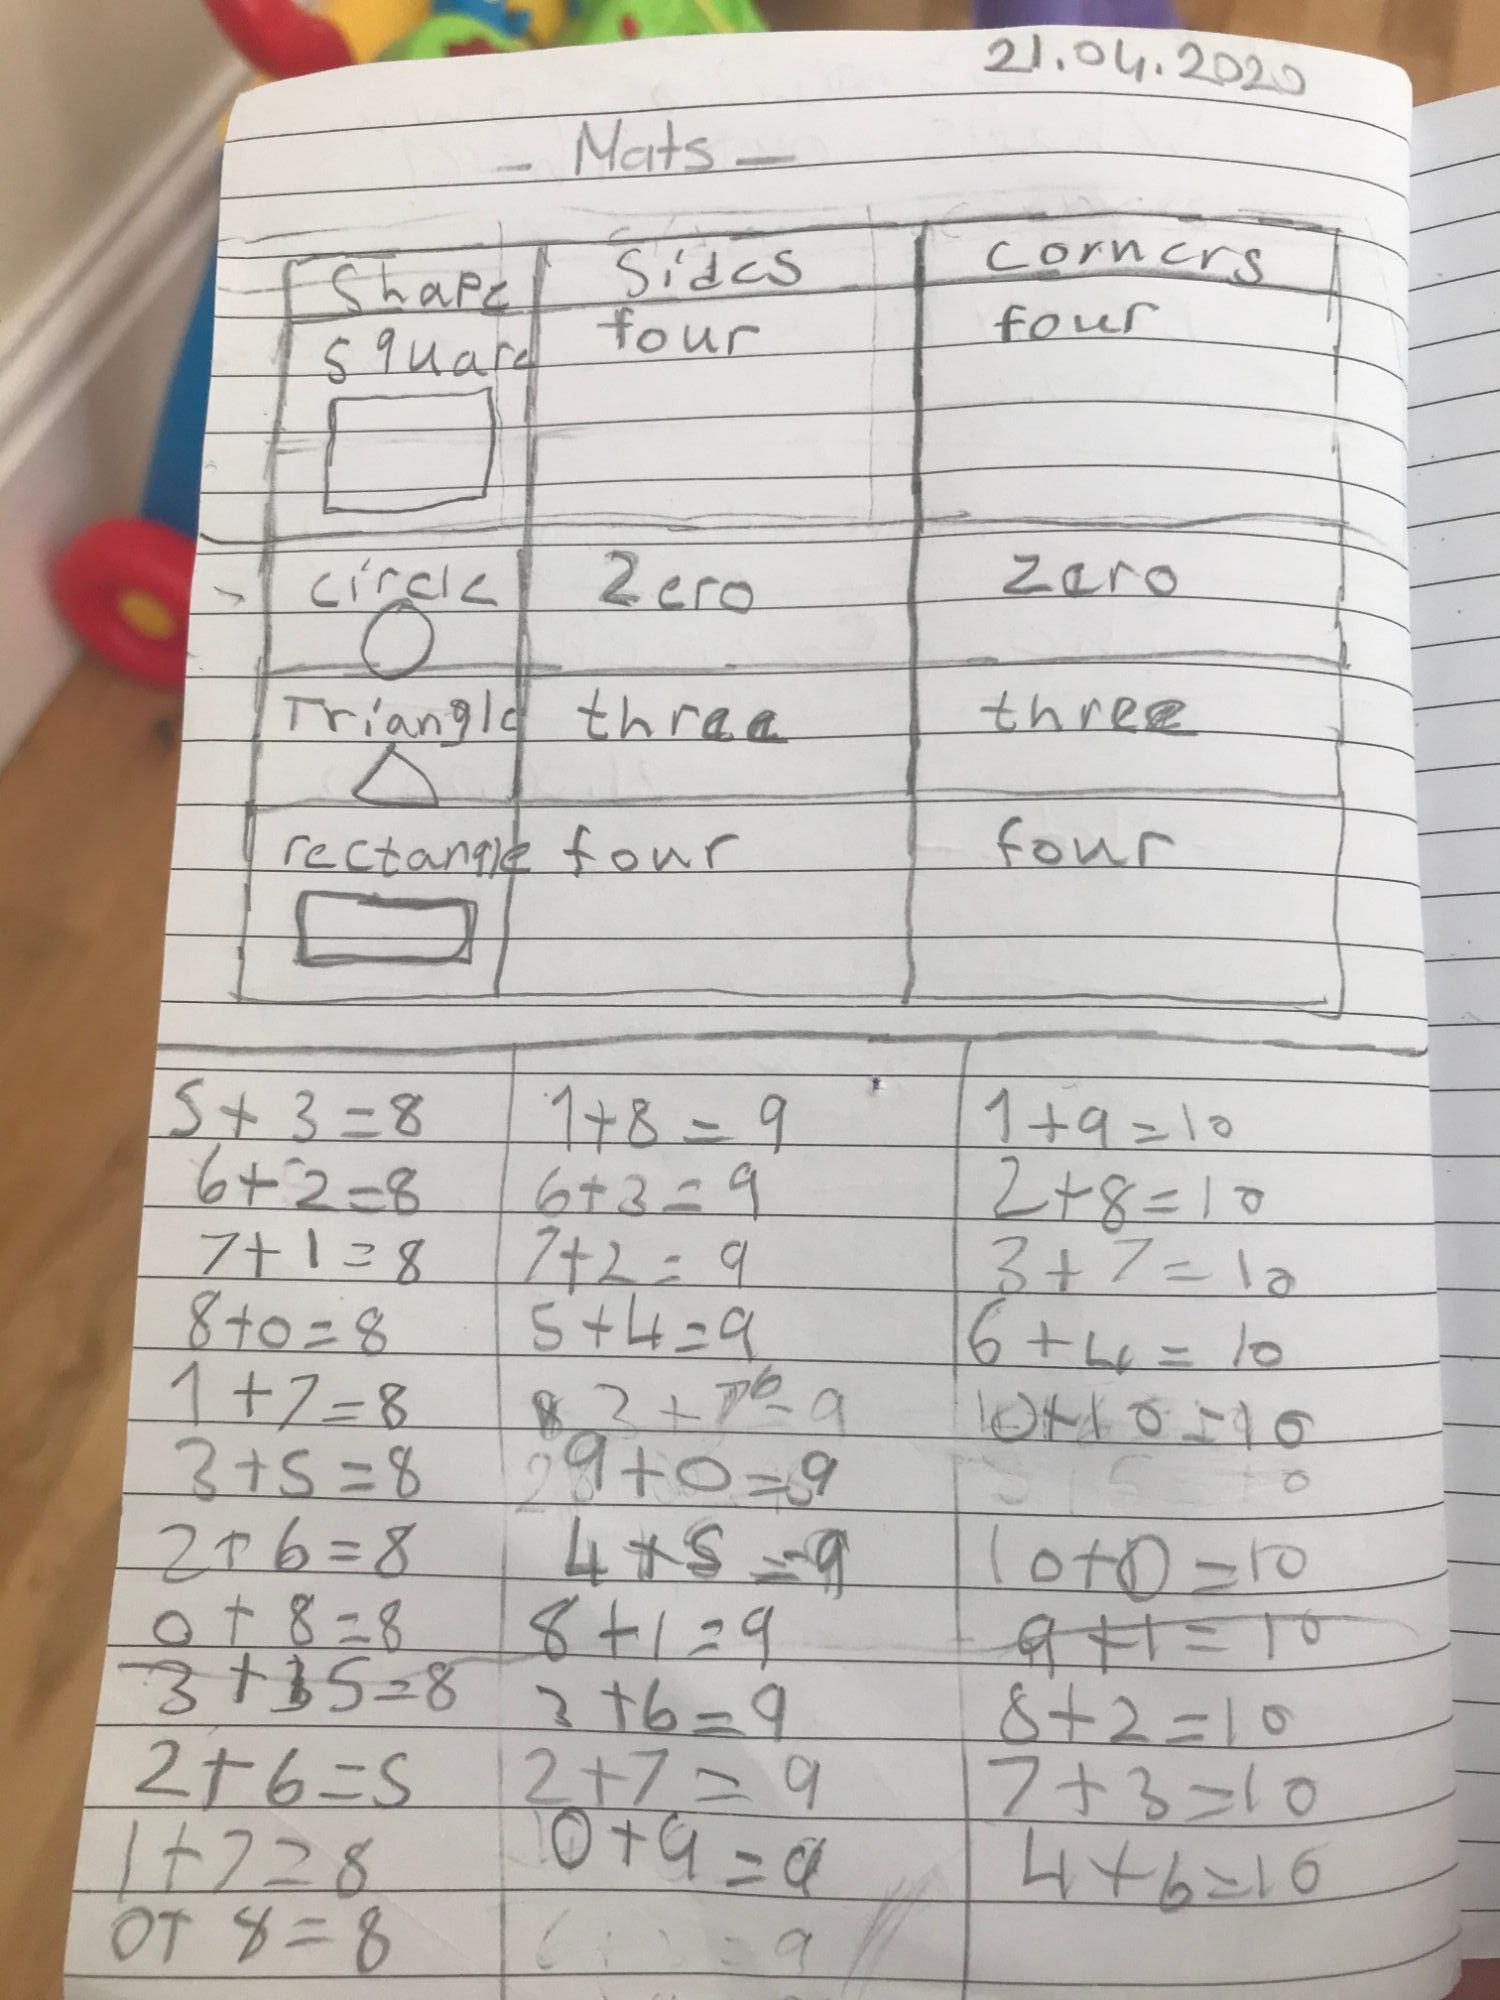 21.04.2020
- Mats -
Shape Sides corners
square four four
circle Zero zero
Triangle three three
rectangle four four
5+3=8 1+8=9 1+9=10
6+2=8 6+3=9 2+8=10
7+1=8 7+2=9 3+7=10
8+0=8 5+4=9 6+4=10
1+7=8 3+6=9 10+10=10
3+5=8 9+0=9
2+6=8 4+5=9 10+0=10
0+8=8 8+1=9 9+1=10
3+5=8 3+6=9 8+2=10
2+6=5 2+7=9 7+3=10
1+7=8 0+9=9 4+6=10
0+8=8